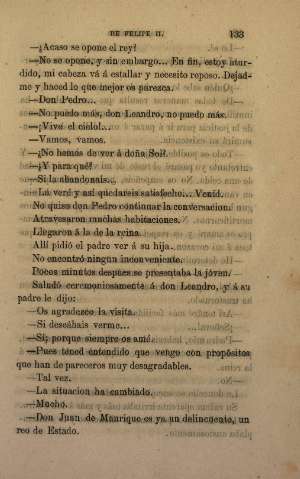 DE FELIPE II. 133
—¿Acaso se opone el rey?
—No se opone, y sin embargo... En fin, estoy atur-
dido, mi cabeza vá á estallar y necesito reposo. Dejad-
me y haced lo que mejor os parezca.
—Don Pedro...
—No puedo más, don Leandro, no puedo más.
—¡Vive el cielo!...
—Vamos, vamos.
—¿No hemás de ver á doña Sol?
—¿Y para qué?
—Si la abandonais...
—La veré y así quedareis satisfecho... Venid.
No quiso don Pedro continuar la conversacion.
Atravesaron muchas habitaciones.
Llegaron á la de la reina.
Allí pidió el padre ver á su hija.
No encontró ningun inconveniente.
Pocos minutos despues se presentaba la jóven.
Saludó ceremoniosamente á don Leandro, y á su
padre le dijo:
—Os agradezco la visita.
—Si deseábais verme...
—Sí, porque siempre os amé.
—Pues tened entendido que vengo con propósitos
que han de pareceros muy desagradables.
—Tal vez.
—La situacion ha cambiado.
—Mucho.
—Don Juan de Manrique es ya un delincuente, un
reo de Estado.